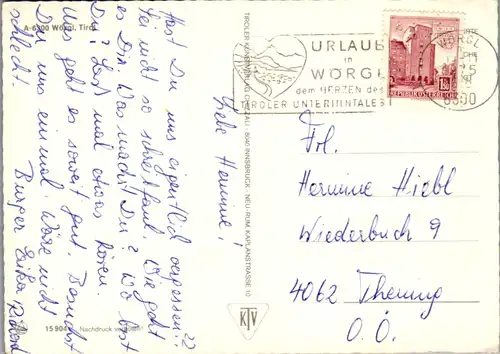 A-6300 Wörgl, Tirol
Liebe Hermine!
Hast Du uns eigentlich vergessen??
Sei nicht so schreibfaul. Wie geht
es Dir? Was machst Du? Wo bist
Du? Lass mal etwas hören.
Uns geht es soweit gut. Besuchst
Du uns einmal. Wäre nicht
schlecht.
Burger Erika
15 904
Nachdruck
TIROLER KUNSTVERLAG CHIZZALI · 6040 INNSBRUCK · NEU-RUM, KAPLANSTRASSE 10
KTV
URLAUB
in
WÖRGL
dem HERZEN des
TIROLER UNTERINNTALES
WÖRGL
6300
REPUBLIK ÖSTERREICH
Frl.
Hermine Hiebl
Wiederbuch 9
4062 Thening
O.Ö.